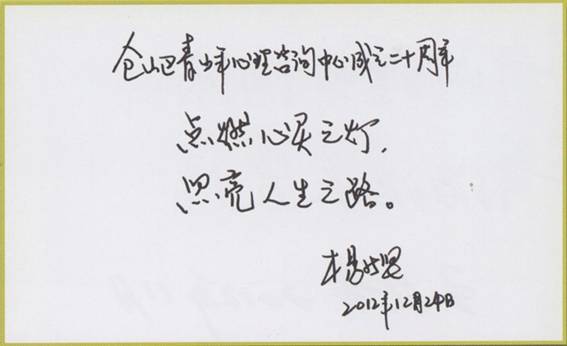 仓山区青少年心理咨询中心成立二十周年
点燃心灵之灯,
照亮人生之路。
2012年12月24日